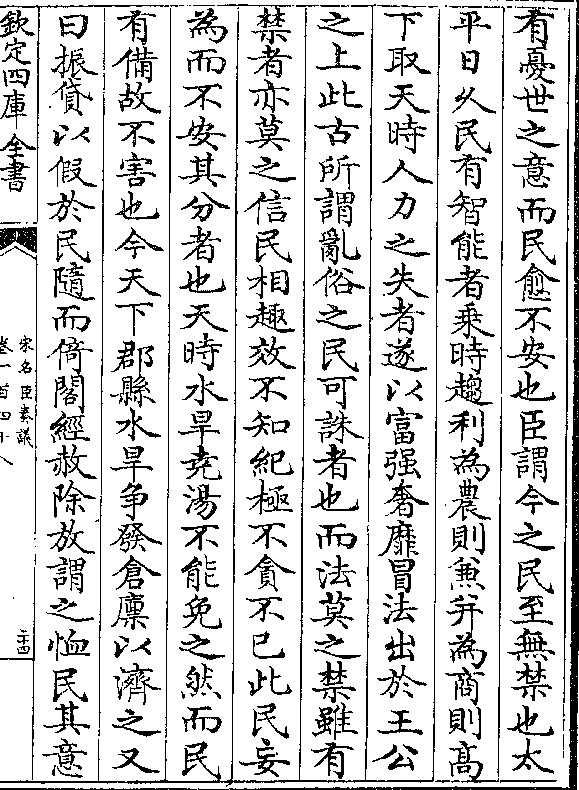 有憂世之意而民愈不安也臣謂今之民至無禁也太
平日久民有智能者乗時趨利為農則兼并為商則高
下取天時人力之失者遂以富强奢靡冒法出於王公
之上此古所謂亂俗之民可誅者也而法莫之禁雖有
禁者亦莫之信民相趣效不知紀極不貪不已此民妄
為而不安其分者也天時水旱堯湯不能免之然而民
有備故不害也今天下郡縣水旱争發倉廩以濟之又
曰振貸以假於民隨而倚閣經赦除放謂之恤民其意
欽定四庫全書
宋名臣奏議
卷一百四
二十四